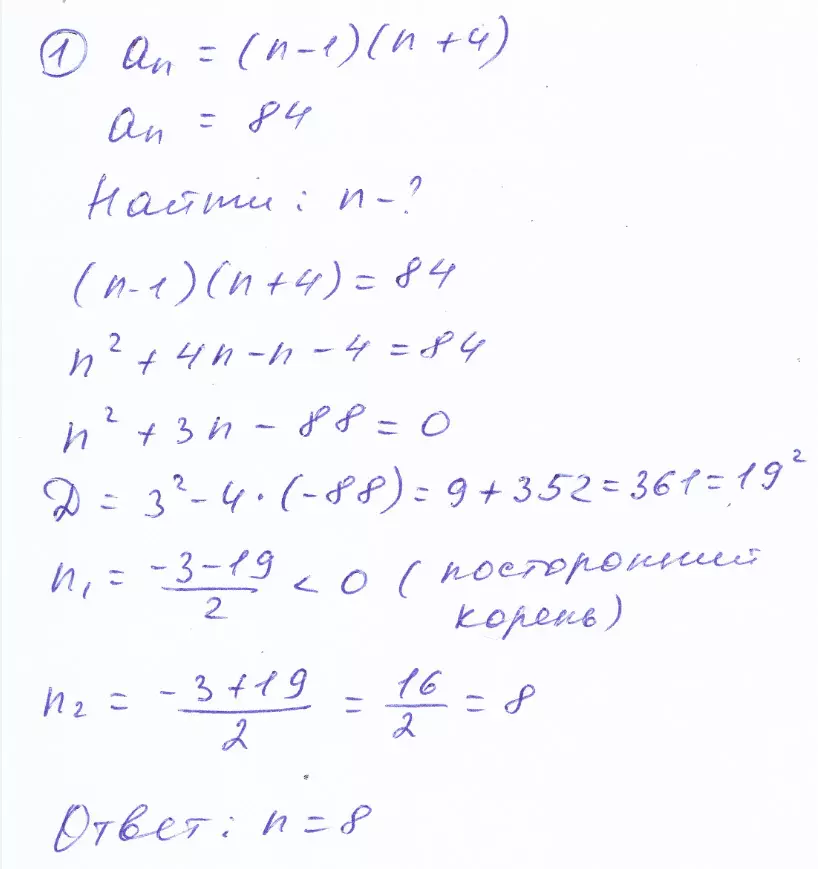 ① aₙ = (n-1)(n+4)
aₙ = 84
Найти: n-?
(n-1)(n+4)=84
n²+4n-n-4=84
n²+3n-88=0
D=3²-4·(-88)=9+352=361=19²
n₁=(-3-19)/2<0 (посторонний
корень)
n₂=(-3+19)/2=16/2=8
Ответ: n=8